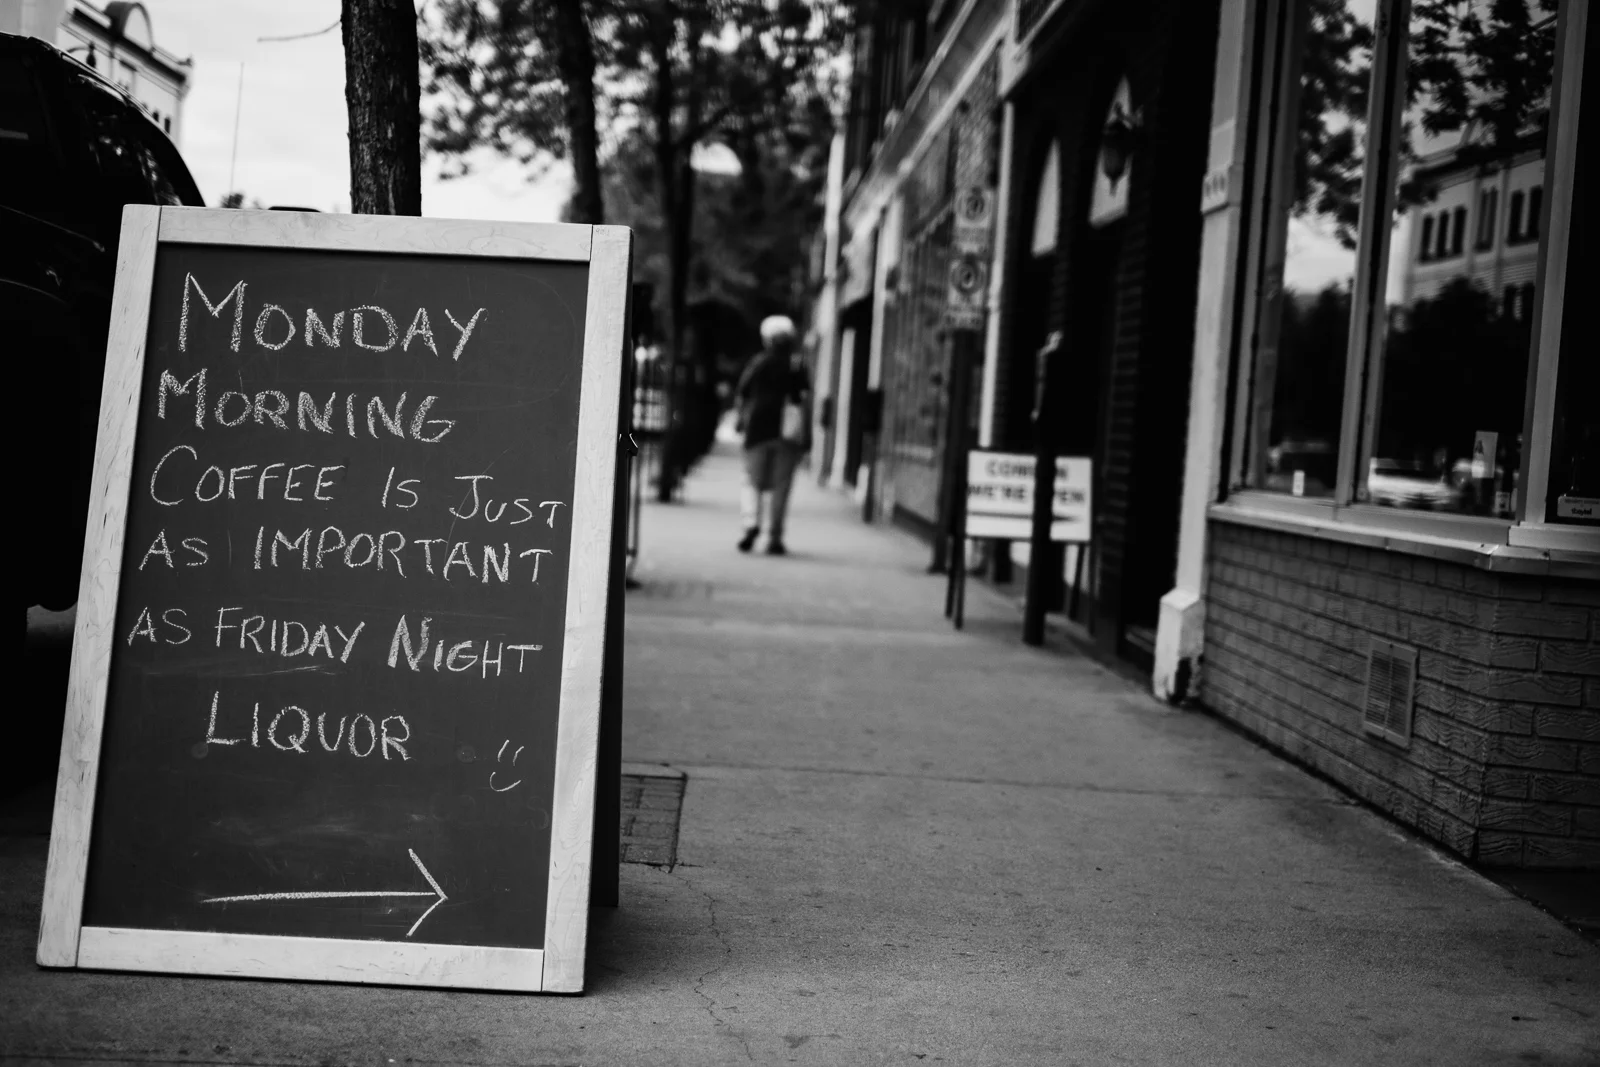 MONDAY
MORNING
COFFEE IS JUST
AS IMPORTANT
AS FRIDAY NIGHT
LIQUOR
COME IN
WE'RE OPEN